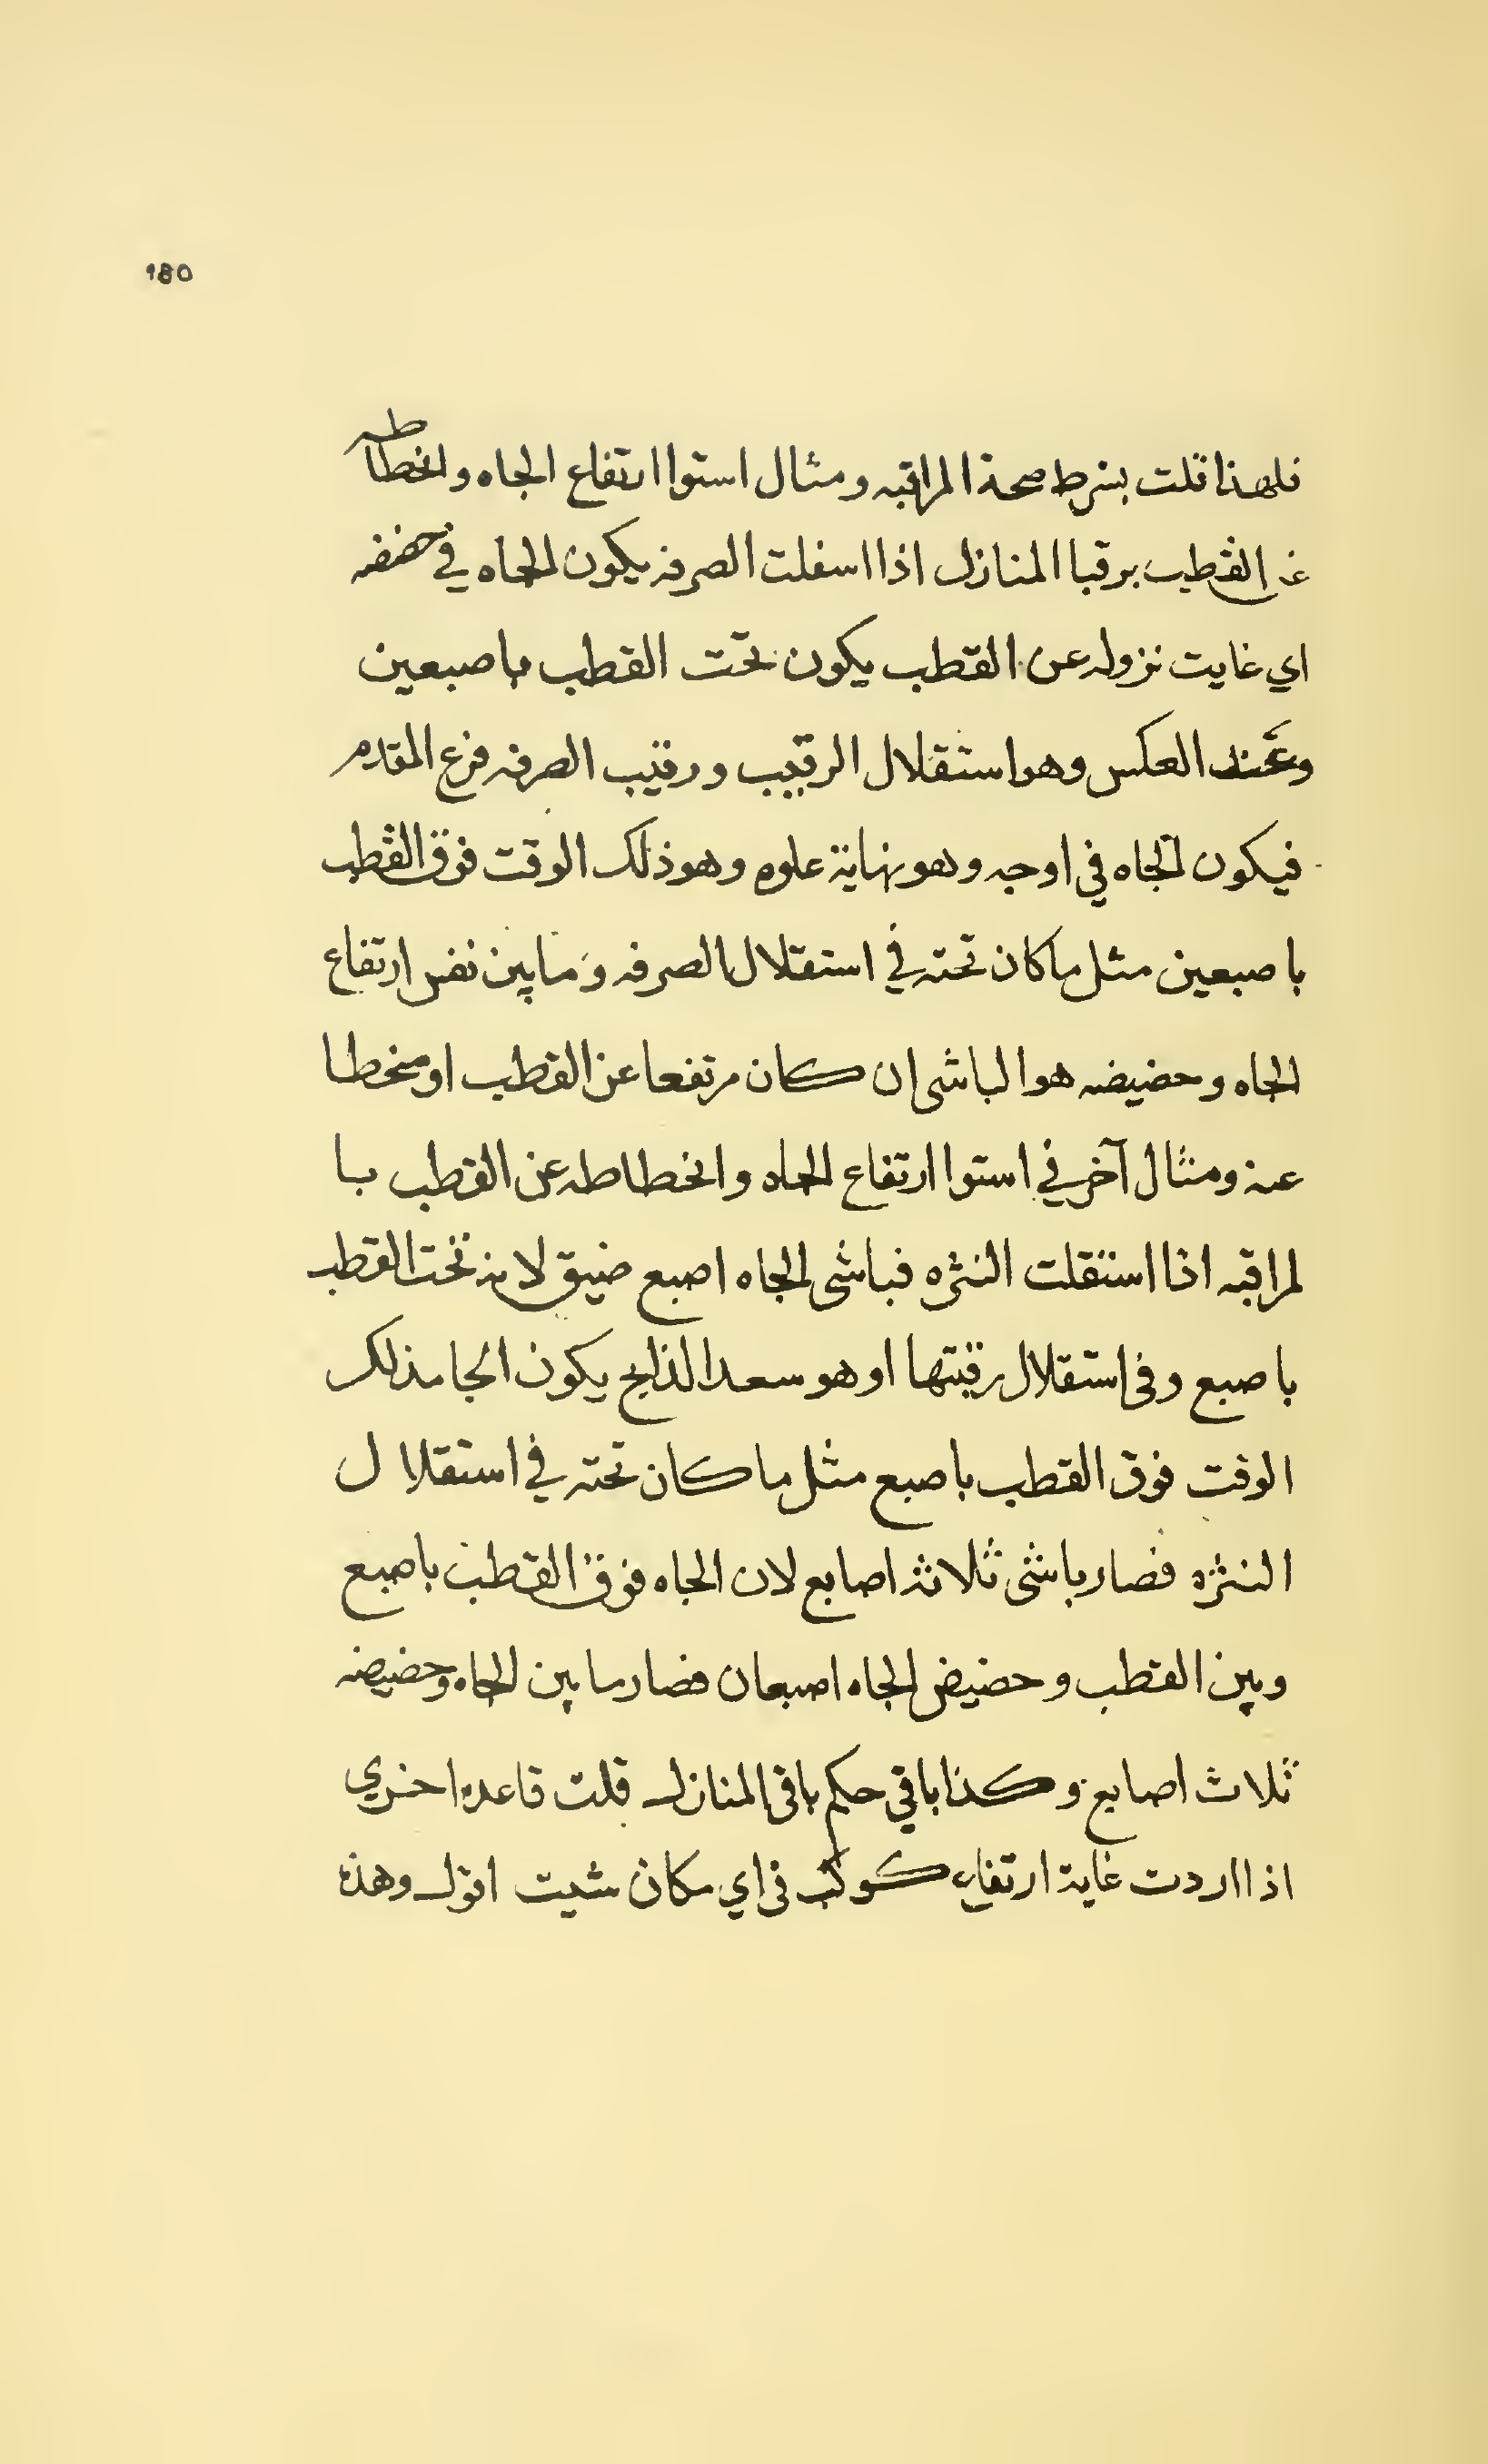 180
فلهذا قلت بشرط صحة المراقبه ومثال استوا ارتفاع الجاه وانخطاطه
عن القطب برقبا المنازل اذا اسفلت الصرفه يكون الجاه في
اي غايت نزوله عن القطب يكون تحت القطب باصبعين
وعند العكس وهو استقلال الرقيب ورقيب الصرفه فرع المقدم
فيكون الجاه في اوجه وهو نهاية علوه وهو ذلك الوقت فوق القطب
باصبعين مثل ما كان تحته في استقلال الصرفه وما بين نفس ارتفاع
الجاه وحضيضه هو الباشي ان كان مرتفعا عن القطب او منخطا
عنه ومثال آخر في استوا ارتفاع الجاه وانخطاطه عن القطب با
لمراقبه اذا استقلت النثره فباشي الجاه اصبع ضيق لانه تحت القطب
باصبع وفي استقلال رقيبتها او هو سعد الذابح يكون الجاه ذلك
الوقت فوق القطب باصبع مثل ما كان تحته في استقلال
النثره فصار باشي ثلاثة اصابع لان الجاه فوق القطب باصبع
وبين القطب وحضيض الجاه اصبعان فصار ما بين الجاه وحضيضه
ثلاث اصابع وكذا باقي حكم باقي المنازل قلت قاعده اخري
اذا اردت غاية ارتفاع كوكب في اي مكان شيت اقول وهذه